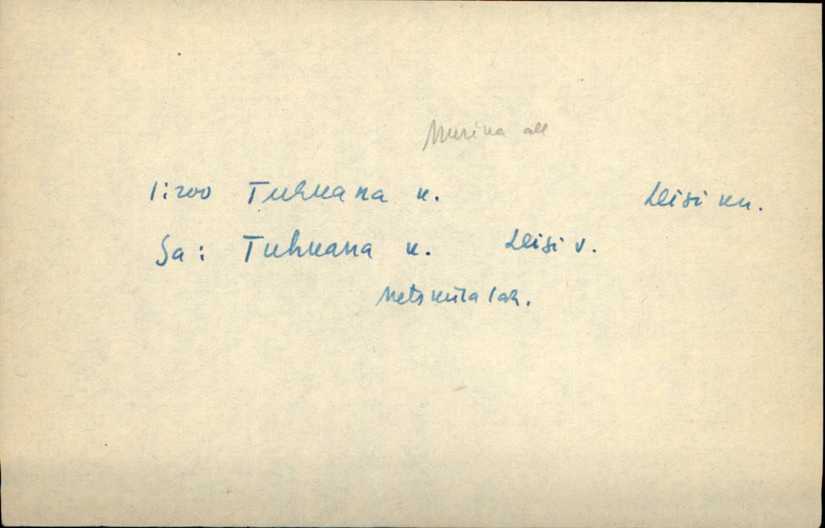 Murika all
1:200 Tuhkana k. Leisi kn.
Sa: Tuhkana k. Leisi v.
Metsküla lah.